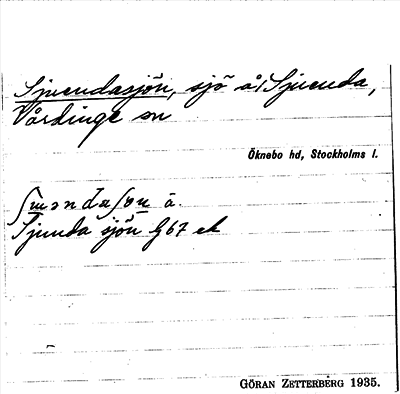 Sjuendasjön, sjö å/Sjuenda,
Vårdinge sn
Öknebo hd, Stockholms l.
ʃɯəndaʃøn ā.
Sjunda sjön G67 ek
GÖRAN ZETTERBERG 1935.